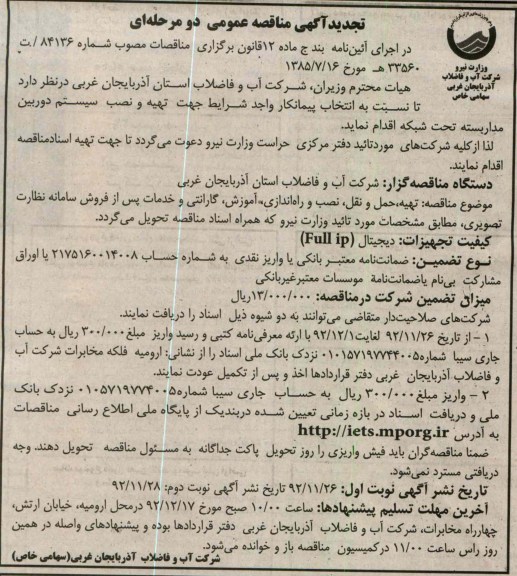 تجدیدآگهی مناقصه عمومی دو مرحله‌ای
وزارت نیرو
شرکت آب و فاضلاب
آذربایجان غربی
سهامی خاص
در اجرای آئین‌نامه بند ج ماده ۱۲قانون برگزاری مناقصات مصوب شماره ۸۴۱۳۶ /ت
۳۳۵۶۰ هـ مورخ ۱۳۸۵/۷/۱۶
هیات محترم وزیران، شرکت آب و فاضلاب استان آذربایجان غربی درنظر دارد
تا نسبت به انتخاب پیمانکار واجد شرایط جهت تهیه و نصب سیستم دوربین
مداربسته تحت شبکه اقدام نماید.
لذا ازکلیه شرکت‌های موردتائید دفتر مرکزی حراست وزارت نیرو دعوت می‌گردد تا جهت تهیه اسنادمناقصه
اقدام نمایند.
دستگاه مناقصه‌گزار: شرکت آب و فاضلاب استان آذربایجان غربی
موضوع مناقصه: تهیه،حمل و نقل، نصب و راه‌اندازی،آموزش، گارانتی و خدمات پس از فروش سامانه نظارت
تصویری، مطابق مشخصات مورد تائید وزارت نیرو که همراه اسناد مناقصه تحویل می‌گردد.
کیفیت تجهیزات: دیجیتال (Full ip)
نوع تضمین: ضمانت‌نامه معتبر بانکی یا واریز نقدی به شماره حساب ۲۱۷۵۱۶۰۰۱۴۰۰۸ یا اوراق
مشارکت بی‌نام یاضمانت‌نامة موسسات معتبرغیربانکی
میزان تضمین شرکت درمناقصه: ۱۳/۰۰۰/۰۰۰ریال
شرکت‌های صلاحیت‌دار متقاضی می‌توانند به دو شیوه ذیل اسناد را دریافت نمایند.
۱ – از تاریخ ۹۲/۱۱/۲۶ لغایت۹۲/۱۲/۱ با ارئه معرفی‌نامه کتبی و رسید واریز مبلغ۳۰۰/۰۰۰ ریال به حساب
جاری سیبا شماره۰۱۰۱۵۷۱۹۷۷۴۰۰۵ نزدک بانک ملی اسناد را از نشانی: ارومیه فلکه مخابرات شرکت آب
و فاضلاب آذربایجان غربی دفتر قراردادها اخذ و پس از تکمیل عودت نمایند.
۲ – واریز مبلغ۳۰۰/۰۰۰ ریال به حساب جاری سیبا شماره۰۱۰۵۷۱۹۷۷۴۰۰۵ نزدک بانک
ملی و دریافت اسناد در بازه زمانی تعیین شده دربندیک از پایگاه ملی اطلاع رسانی مناقصات
به آدرس http://iets.mporg.ir
ضمنا مناقصه‌گران باید فیش واریزی را روز تحویل پاکت جداگانه به مسئول مناقصه تحویل دهند. وجه
دریافتی مسترد نمی‌شود.
تاریخ نشر آگهی نوبت اول: ۹۲/۱۱/۲۶ تاریخ نشر آگهی نوبت دوم: ۹۲/۱۱/۲۸
آخرین مهلت تسلیم پیشنهادها: ساعت ۱۰/۰۰ صبح مورخ ۹۲/۱۲/۱۷ درمحل ارومیه، خیابان ارتش،
چهارراه مخابرات، شرکت آب و فاضلاب آذربایجان غربی دفتر قراردادها بوده و پیشنهادهای واصله در همین
روز راس ساعت ۱۱/۰۰ درکمیسیون مناقصه باز و خوانده می‌شود.
شرکت آب و فاضلاب آذربایجان غربی(سهامی خاص)